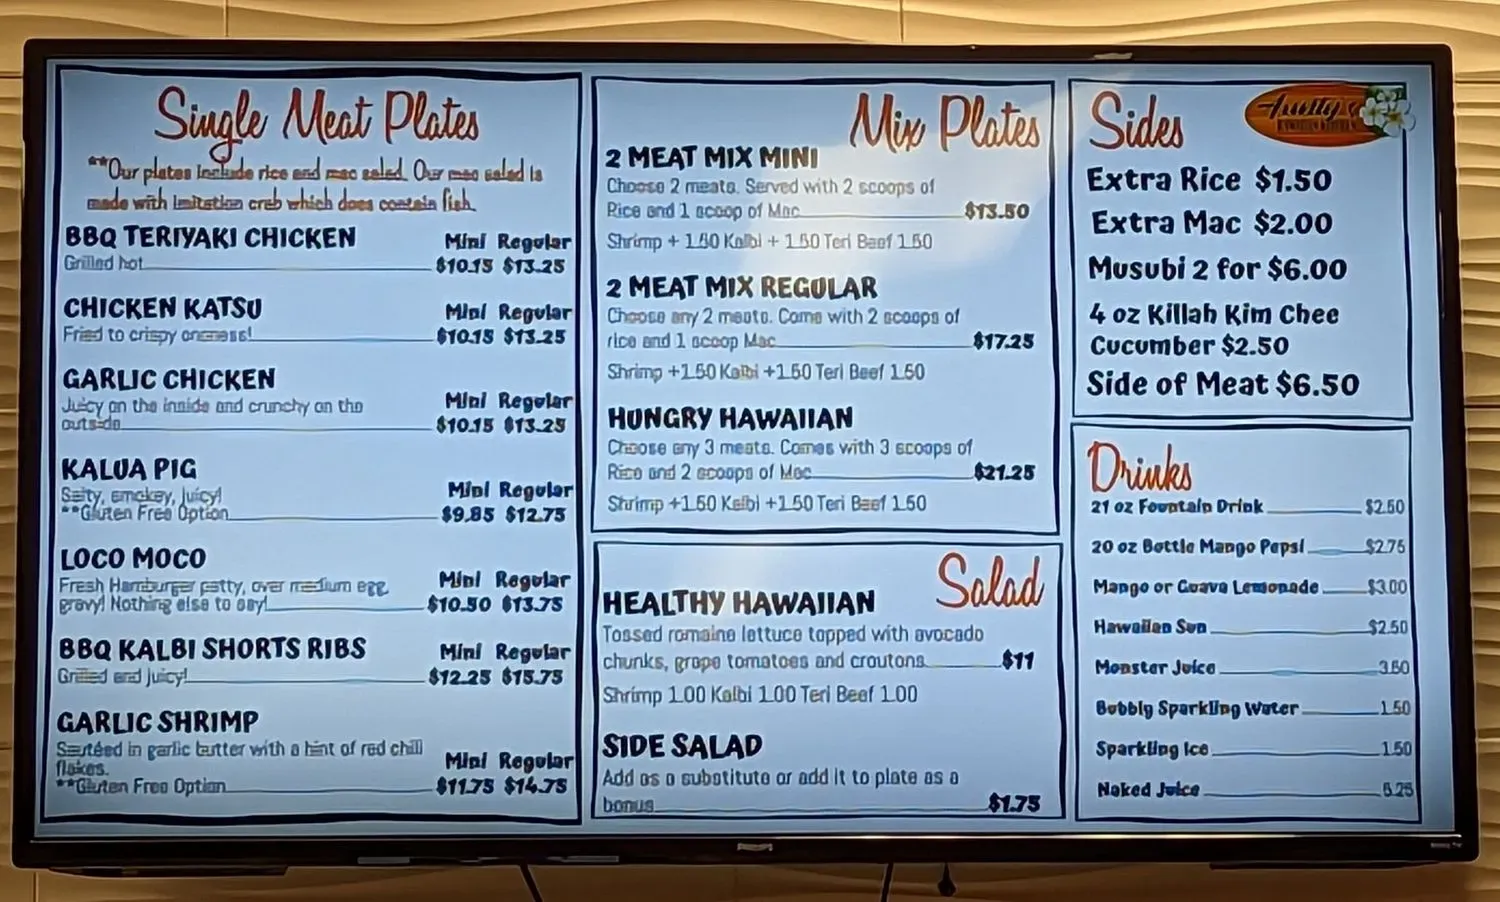 Single Meat Plates
**Our plates include rice and mac salad. Our mac salad is
made with imitation crab which does contain fish.
BBQ TERIYAKI CHICKEN Mini Regular
Grilled hot $10.15 $13.25
CHICKEN KATSU Mini Regular
Fried to crispy $10.15 $13.25
GARLIC CHICKEN
Juicy on the inside and crunchy on the Mini Regular
outside $10.15 $13.25
KALUA PIG
Salty, smokey, juicy! Mini Regular
**Gluten Free Option $9.85 $12.75
LOCO MOCO
Fresh Hamburger patty, over medium egg, Mini Regular
gravy! Nothing else to say! $10.50 $13.75
BBQ KALBI SHORTS RIBS Mini Regular
Grilled and juicy! $12.25 $15.75
GARLIC SHRIMP
Sautéed in garlic butter with a hint of red chili
flakes. Mini Regular
**Gluten Free Option $11.75 $14.75
Mix Plates
2 MEAT MIX MINI
Choose 2 meats. Served with 2 scoops of
Rice and 1 scoop of Mac $13.50
Shrimp + 1.50 Kalbi + 1.50 Teri Beef 1.50
2 MEAT MIX REGULAR
Choose any 2 meats. Come with 2 scoops of
rice and 1 scoop Mac $17.25
Shrimp +1.50 Kalbi +1.50 Teri Beef 1.50
HUNGRY HAWAIIAN
Choose any 3 meats. Comes with 3 scoops of
Rice and 2 scoops of Mac $21.25
Shrimp +1.50 Kalbi +1.50 Teri Beef 1.50
Salad
HEALTHY HAWAIIAN
Tossed romaine lettuce topped with avocado
chunks, grape tomatoes and croutons $11
Shrimp 1.00 Kalbi 1.00 Teri Beef 1.00
SIDE SALAD
Add as a substitute or add it to plate as a
bonus $1.75
Sides
Extra Rice $1.50
Extra Mac $2.00
Musubi 2 for $6.00
4 oz Killah Kim Chee
Cucumber $2.50
Side of Meat $6.50
Drinks
21 oz Fountain Drink $2.50
20 oz Bottle Mango Pepsi $2.75
Mango or Guava Lemonade $3.00
Hawaiian Sun $2.50
Monster Juice 3.50
Bubbly Sparkling Water 1.50
Sparkling Ice 1.50
Naked Juice 5.25